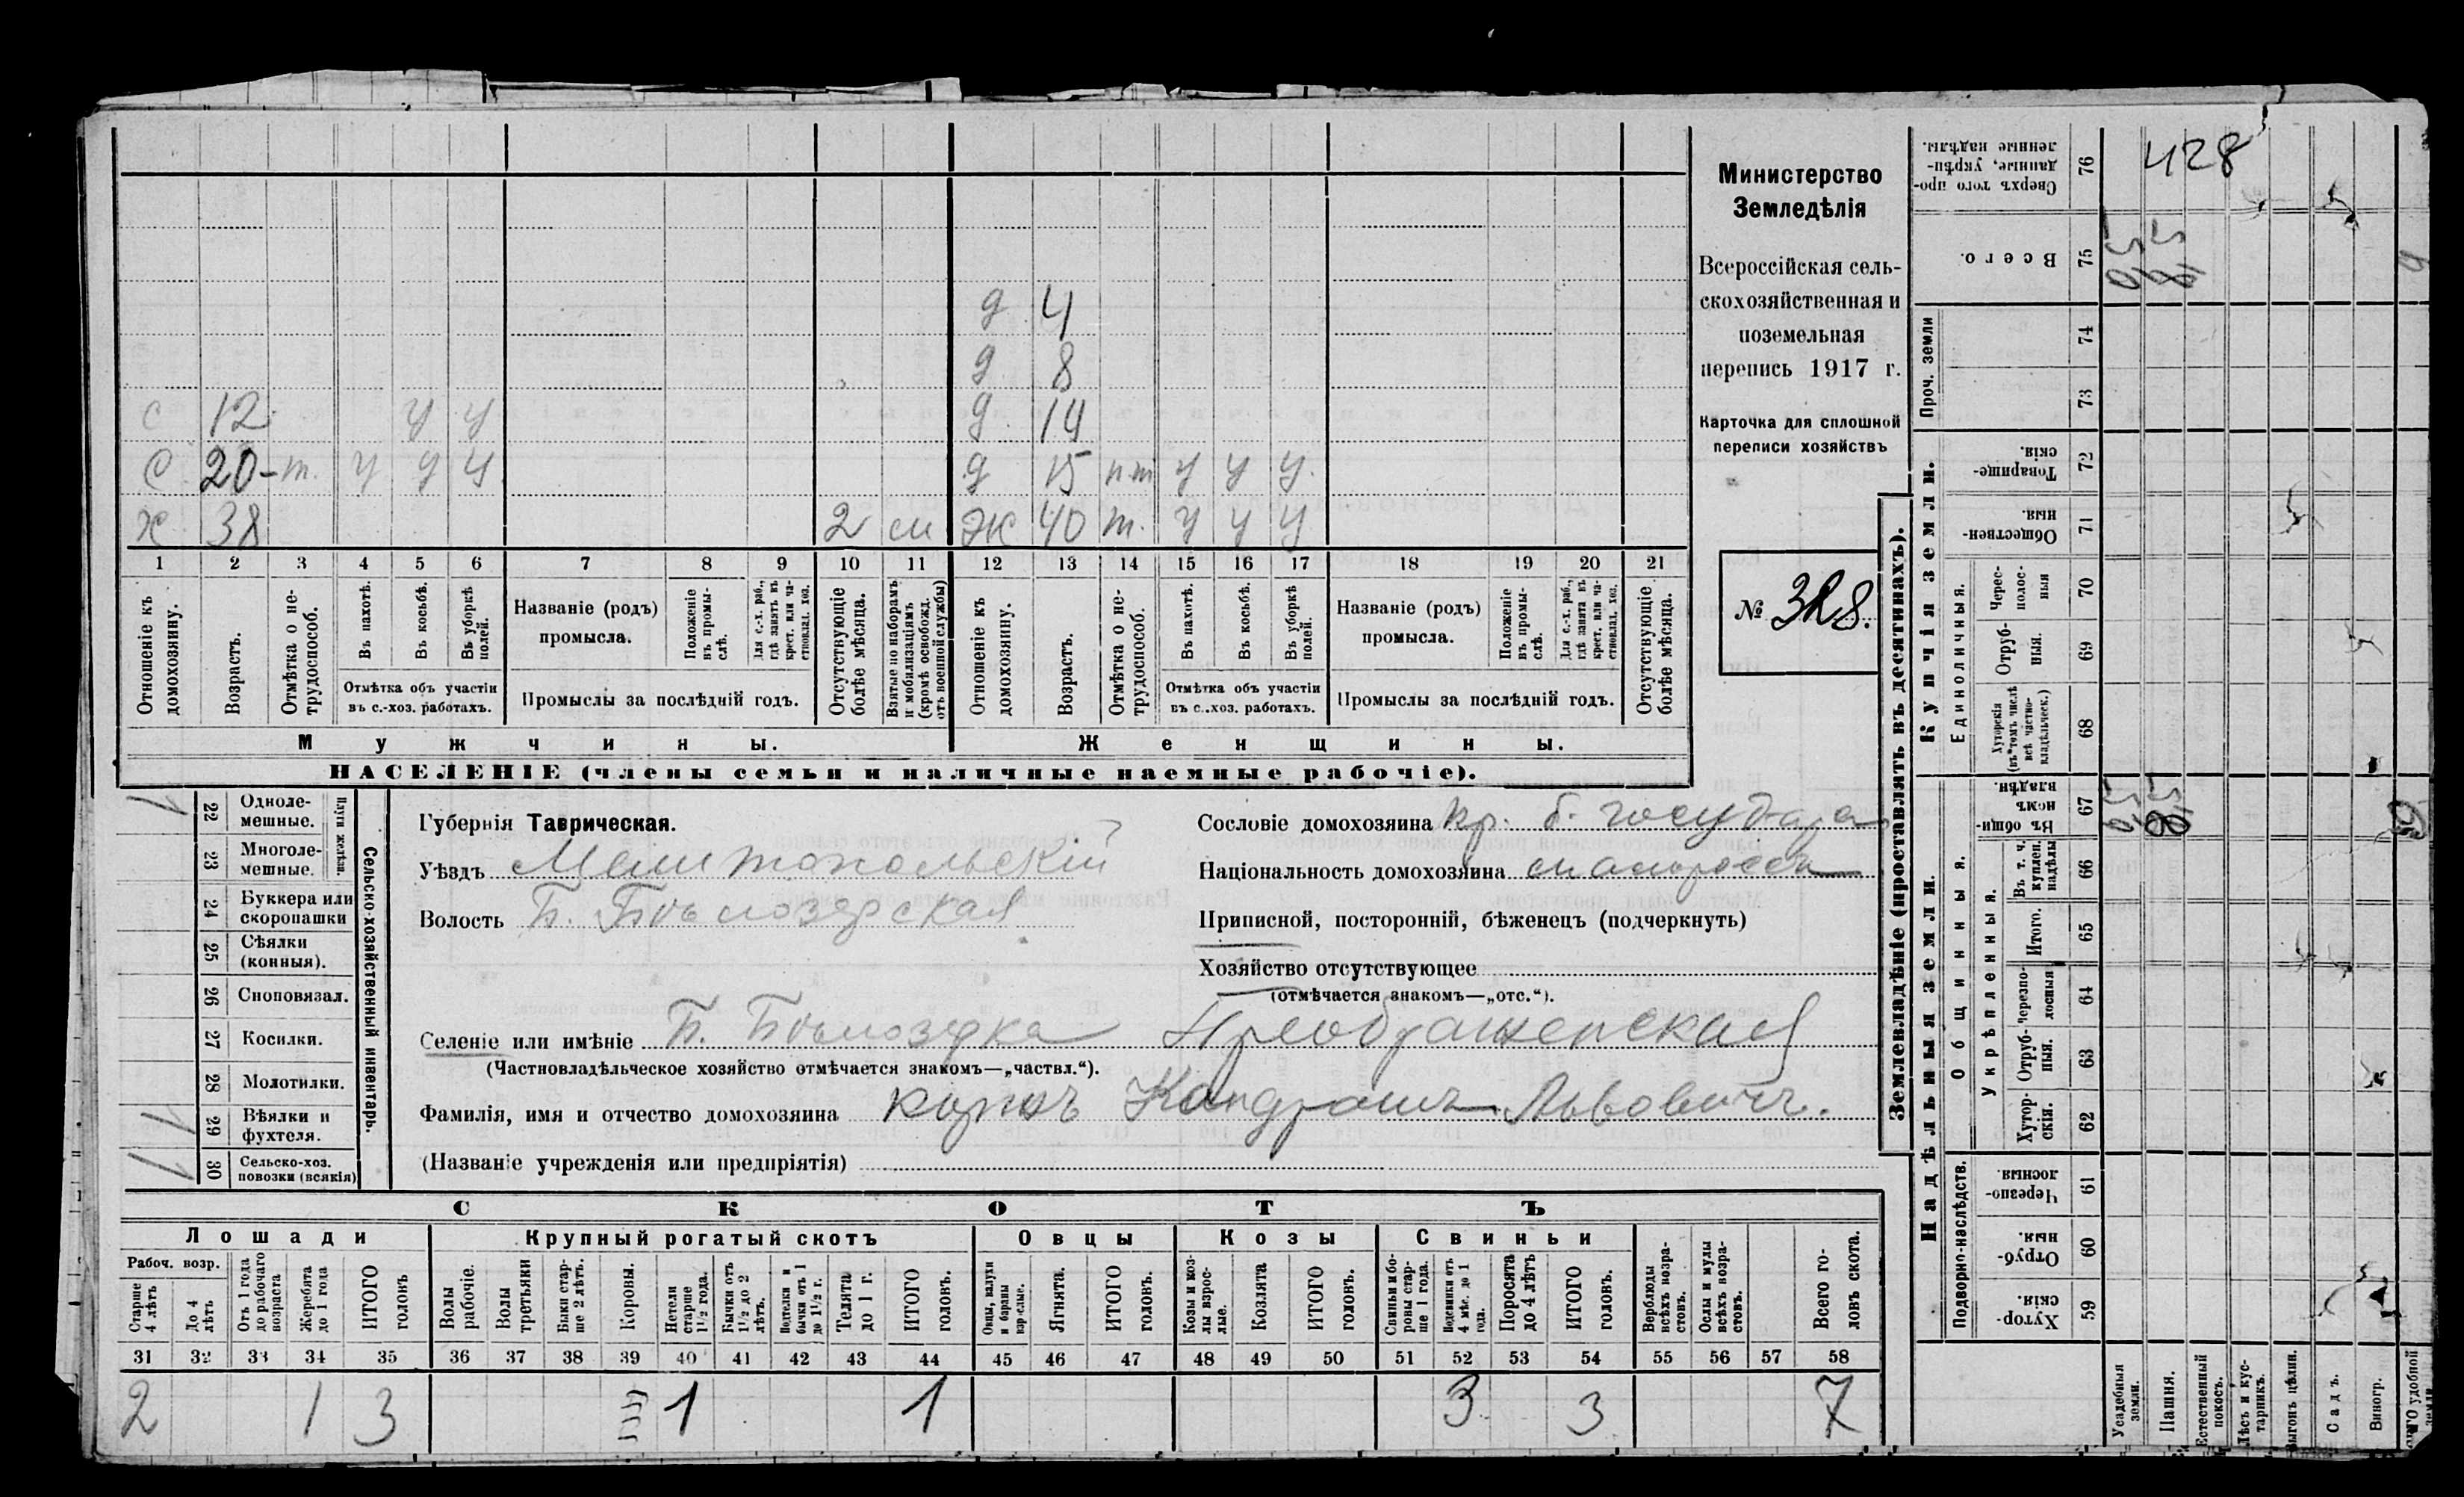 428
Министерство
Земледѣлія
Всероссійская сель-
скохозяйственная и
поземельная
перепись 1917 г.
Карточка для сплошной
переписи хозяйствъ
№ 328.
д 4
д 8
с 12 у у д 14
с 20 - т. у у у д 15 п.т у у у.
х 38 2 см ж 40 т. у у у
1 2 3 4 5 6 7 8 9 10 11 12 13 14 15 16 17 18 19 20 21
Отношеніе къ домохозяину.
Возрастъ.
Отмѣтка о не-трудоспособ.
Въ пахотѣ.
Въ косьбѣ.
Въ уборкѣ полей.
Отмѣтка объ участіи
въ с.-хоз. работахъ.
Названіе (родъ)
промысла.
Положеніе въ промы-слѣ.
Для с.-х. раб., гдѣ занятъ въ крест. или ча-стновлад. хоз.
Промыслы за послѣдній годъ.
Отсутствующіе болѣе мѣсяца.
Взятые по наборамъ и мобилизаціямъ (кромѣ освобожд. отъ военной службы)
Отношеніе къ домохозяину.
Возрастъ.
Отмѣтка о не-трудоспособ.
Въ пахотѣ.
Въ косьбѣ.
Въ уборкѣ полей.
Отмѣтка объ участіи
въ с.-хоз. работахъ.
Названіе (родъ)
промысла.
Положеніе въ промы-слѣ.
Для с.-х. раб., гдѣ занята въ крест. или ча-стновлад. хоз.
Промыслы за послѣдній годъ.
Отсутствующіе болѣе мѣсяца.
Мужчины. Женщины.
НАСЕЛЕНІЕ (члены семьи и наличные наемные рабочіе).
Сельско-хозяйственный инвентарь.
Плуги желѣзн.
22 Одноле-мешные.
23 Многоле-мешные.
24 Буккера или скоропашки
25 Сѣялки (конныя).
26 Сноповязал.
27 Косилки.
28 Молотилки.
29 Вѣялки и фухтеля.
30 Сельско-хоз. повозки (всякія)
Губернія Таврическая.
Уѣздъ Мелитопольскій
Волость Б. Бѣлозерская
Сословіе домохозяина кр. б. государ
Національность домохозяина малороссъ
Приписной, посторонній, бѣженецъ (подчеркнуть)
Хозяйство отсутствующее
(отмѣчается знакомъ—„отс.“).
Селеніе или имѣніе Б. Бѣлозерка Преображенская
(Частновладѣльческое хозяйство отмѣчается знакомъ—„частвл.“).
Фамилія, имя и отчество домохозяина Кондратъ Львовичъ.
(Названіе учрежденія или предпріятія)
СКОТЪ
Лошади Крупный рогатый скотъ Овцы Козы Свиньи
Рабоч. возр.
Старше 4 лѣтъ
До 4 лѣтъ
Отъ 1 года до рабочаго возраста
Жеребята до 1 года
ИТОГО головъ
Волы рабочіе.
Волы третьяки
Быки стар-ше 2 лѣтъ.
Коровы.
Нетели старше 1½ года.
Бычки отъ 1½ до 2 лѣтъ.
Подтелки и бычки отъ 1 до 1½ г.
Телята до 1 г.
ИТОГО головъ.
Овцы, валухи и бараны взрослые.
Ягнята.
ИТОГО головъ.
Козы и коз-лы взрос-лые.
Козлята
ИТОГО головъ.
Свиньи и бо-ровы стар-ше 1 года.
Подсвинки отъ 4 мѣс. до 1 года.
Поросята до 4 лѣтъ
ИТОГО головъ.
Верблюды всѣхъ возра-стовъ.
Ослы и мулы всѣхъ возра-стовъ.
Всего го-ловъ скота.
31 32 33 34 35 36 37 38 39 40 41 42 43 44 45 46 47 48 49 50 51 52 53 54 55 56 57 58
2 1 3 1 1 3 3 7
Землевладѣніе (проставлять въ десятинахъ).
Купчія земли.
Надѣльныя земли.
76 Сверхъ того про-данные, укрѣп-ленные надѣлы.
75 Всего.
Проч. земли
74
73
72 Товарище-скія.
71 Обществен-ныя.
Единоличныя.
70 Черес-полос-ныя
69 Отруб-ныя.
68 Хуторскія (въ томъ числѣ всѣ частно-владѣльческ.)
Общинныя.
67 Въ общи-номъ владѣн.
Укрѣпленныя.
66 Въ т. ч. куплен. надѣлы
65 Итого.
64 Черезпо-лосныя
63 Отруб-ныя.
62 Хутор-скія.
Подворно-наслѣдств.
61 Черезпо-лосныя
60 Отруб-ныя.
59 Хутор-скія.
Усадебныя земли.
Пашня.
Естественный покосъ.
Лѣсъ и кус-тарникъ.
Выгонъ цѣлин.
Садъ.
Виногр.
удобной земли